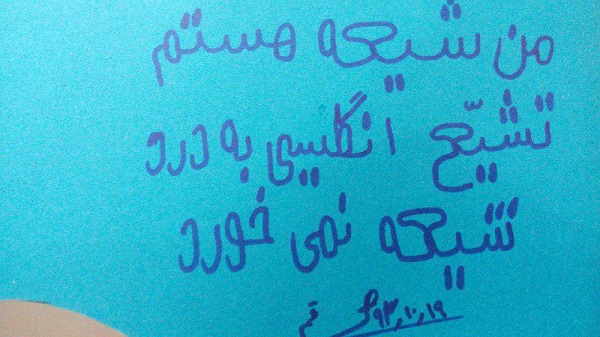 من شیعه هستم
تشیّع انگلیسی به درد
شیعه نمی خورد
۹۳٫۱۰٫۱۹
قم